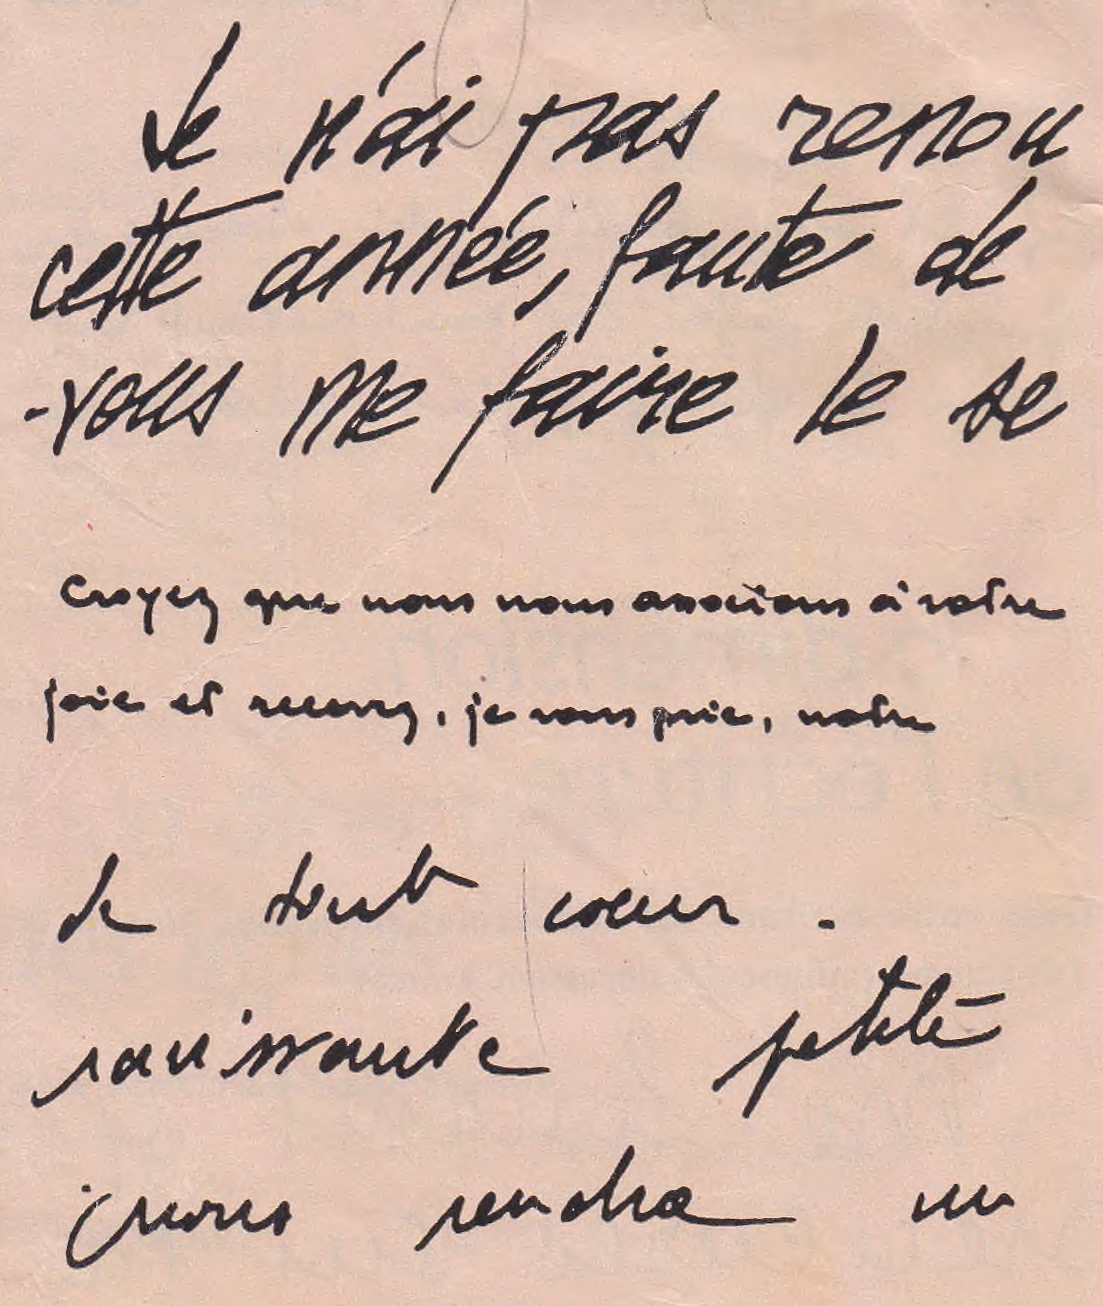 Je n'ai pas renou
cette année, faute de
-vous me faire le se
Croyez que nous nous associons à votre
joie et recevez, je vous prie, notre
de tout coeur.
ravissante petite
rendra un